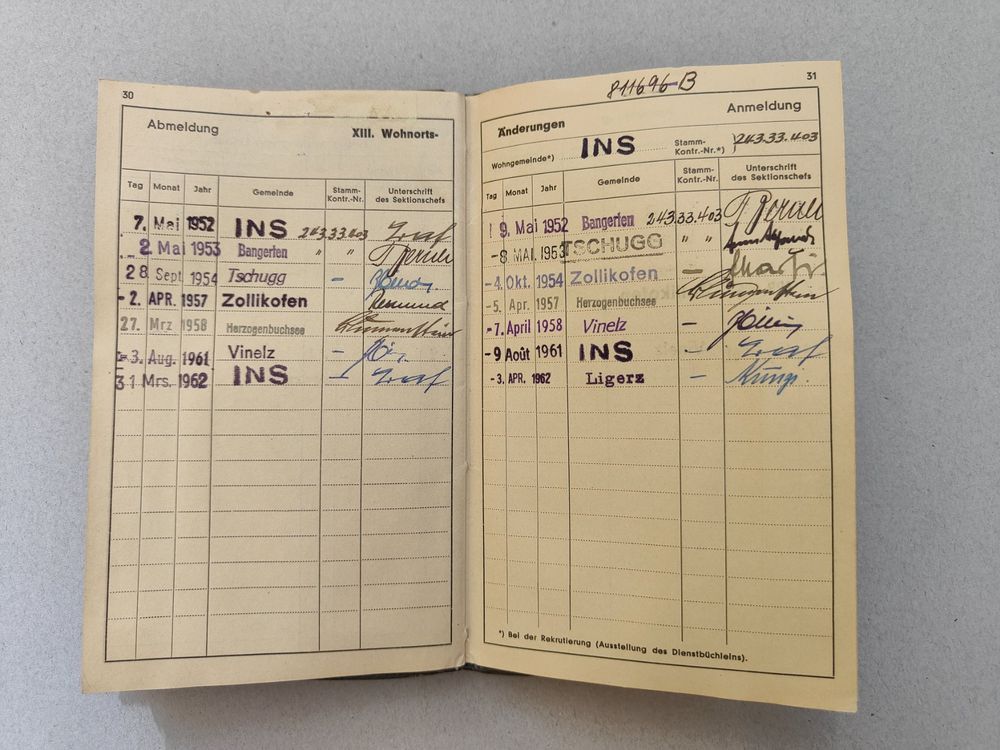 30
Abmeldung XIII. Wohnorts-
Tag Monat Jahr Gemeinde Stamm-Kontr.-Nr. Unterschrift des Sektionschefs
7. Mai 1952 INS 243.33.403 Graf
2. Mai 1953 Bangerten " "
28 Sept 1954 Tschugg –
-2. APR. 1957 Zollikofen
27. Mrz 1958 Herzogenbuchsee
-3. Aug. 1961 Vinelz –
31 Mrs. 1962 INS – Graf
811696-B
31
Änderungen Anmeldung
Wohngemeinde*) INS Stamm-Kontr.-Nr.*) 243.33.403
Tag Monat Jahr Gemeinde Stamm-Kontr.-Nr. Unterschrift des Sektionschefs
9. Mai 1952 Bangerten 243.33.403
-8 MAI. 1953 TSCHUGG " "
-4. Okt. 1954 Zollikofen –
-5. Apr. 1957 Herzogenbuchsee
-7. April 1958 Vinelz –
-9 Août 1961 INS – Graf
-3. APR. 1962 Ligerz –
*) Bei der Rekrutierung (Ausstellung des Dienstbüchleins).